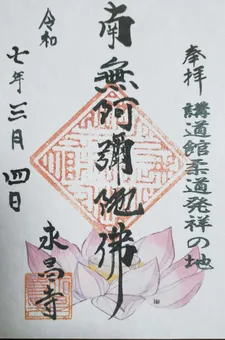 奉拝
講道館柔道発祥の地
南無阿彌陀佛
永昌寺
令和
七年三月四日